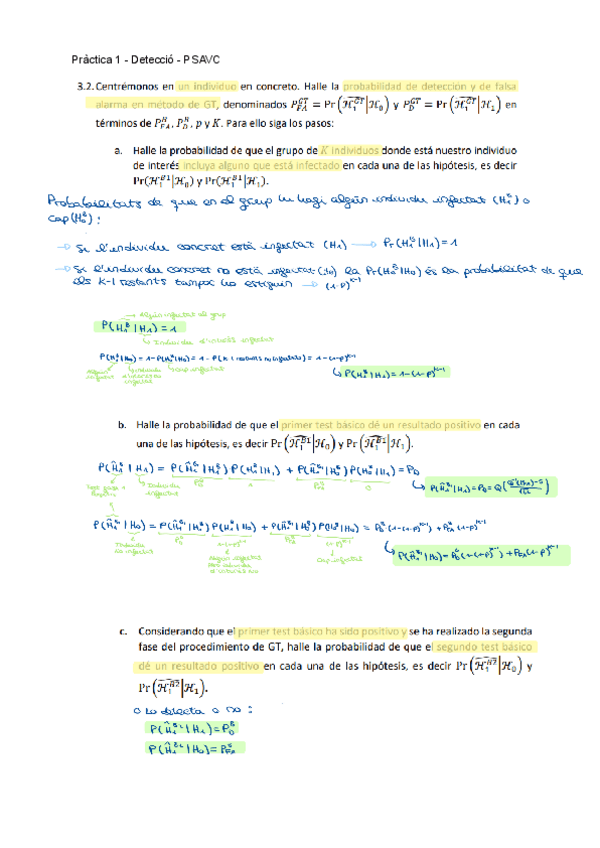 Práctica 1 - Detecció - PSAVC
3.2. Centrémonos en un individuo en concreto. Halle la probabilidad de detección y de falsa
alarma en método de GT, denominados P_{FA}^{GT} = Pr(\widehat{ℋ_1^{GT}}|ℋ_0) y P_D^{GT} = Pr(\widehat{ℋ_1^{GT}}|ℋ_1) en
términos de P_{FA}^B, P_D^B, p y K. Para ello siga los pasos:
a. Halle la probabilidad de que el grupo de K individuos donde está nuestro individuo
de interés incluya alguno que está infectado en cada una de las hipótesis, es decir
Pr(ℋ_1^{B1}|ℋ_0) y Pr(ℋ_1^{B1}|ℋ_1).
Probabilitats de que en el grup hi hagi algún individu infectat (H_1^B) o
cap (H_0^B):
→ Si l'individu concret està infectat (H_1) → Pr(H_1^B|H_1) = 1
→ Si l'individu concret no està infectat (H_0) la Pr(H_0^B|H_0) és la probabilitat de que
els K-1 restants tampoc ho estiguin → (1-p)^{K-1}
→ Algún infectat al grup
P(H_1^B|H_1) = 1
↳ Individu d'interès infectat
P(H_1^B|H_0) = 1 - P(H_0^B|H_0) = 1 - P(K-1 restants no infectats) = 1 - (1-p)^{K-1}
↳ P(H_1^B|H_0) = 1 - (1-p)^{K-1}
b. Halle la probabilidad de que el primer test básico dé un resultado positivo en cada
una de las hipótesis, es decir Pr(\widehat{ℋ_1^{B1}}|ℋ_0) y Pr(\widehat{ℋ_1^{B1}}|ℋ_1).
P(Ĥ_1^{B_1}|H_1) = P(Ĥ_1^{B_1}|H_1^B) P(H_1^B|H_1) + P(Ĥ_1^{B_1}|H_0^B) P(H_0^B|H_1) = P_D
P(Ĥ_1^{B_1}|H_0) = P(Ĥ_1^{B_1}|H_1^B) P(H_1^B|H_0) + P(Ĥ_1^{B_1}|H_0^B) P(H_0^B|H_0) = P_D^B (1-(1-p)^{K-1}) + P_{FA}^B (1-p)^{K-1}
↳ P(Ĥ_1^{B_1}|H_0) = P_D^B (1-(1-p)^{K-1}) + P_{FA} (1-p)^{K-1}
c. Considerando que el primer test básico ha sido positivo y se ha realizado la segunda
fase del procedimiento de GT, halle la probabilidad de que el segundo test básico
dé un resultado positivo en cada una de las hipótesis, es decir Pr(\widehat{ℋ_1^{B2}}|ℋ_0) y
Pr(\widehat{ℋ_1^{B2}}|ℋ_1).
o lo detecta o no:
P(Ĥ_1^{B_2}|H_1) = P_D^B
P(Ĥ_1^{B_2}|H_0) = P_{FA}^B